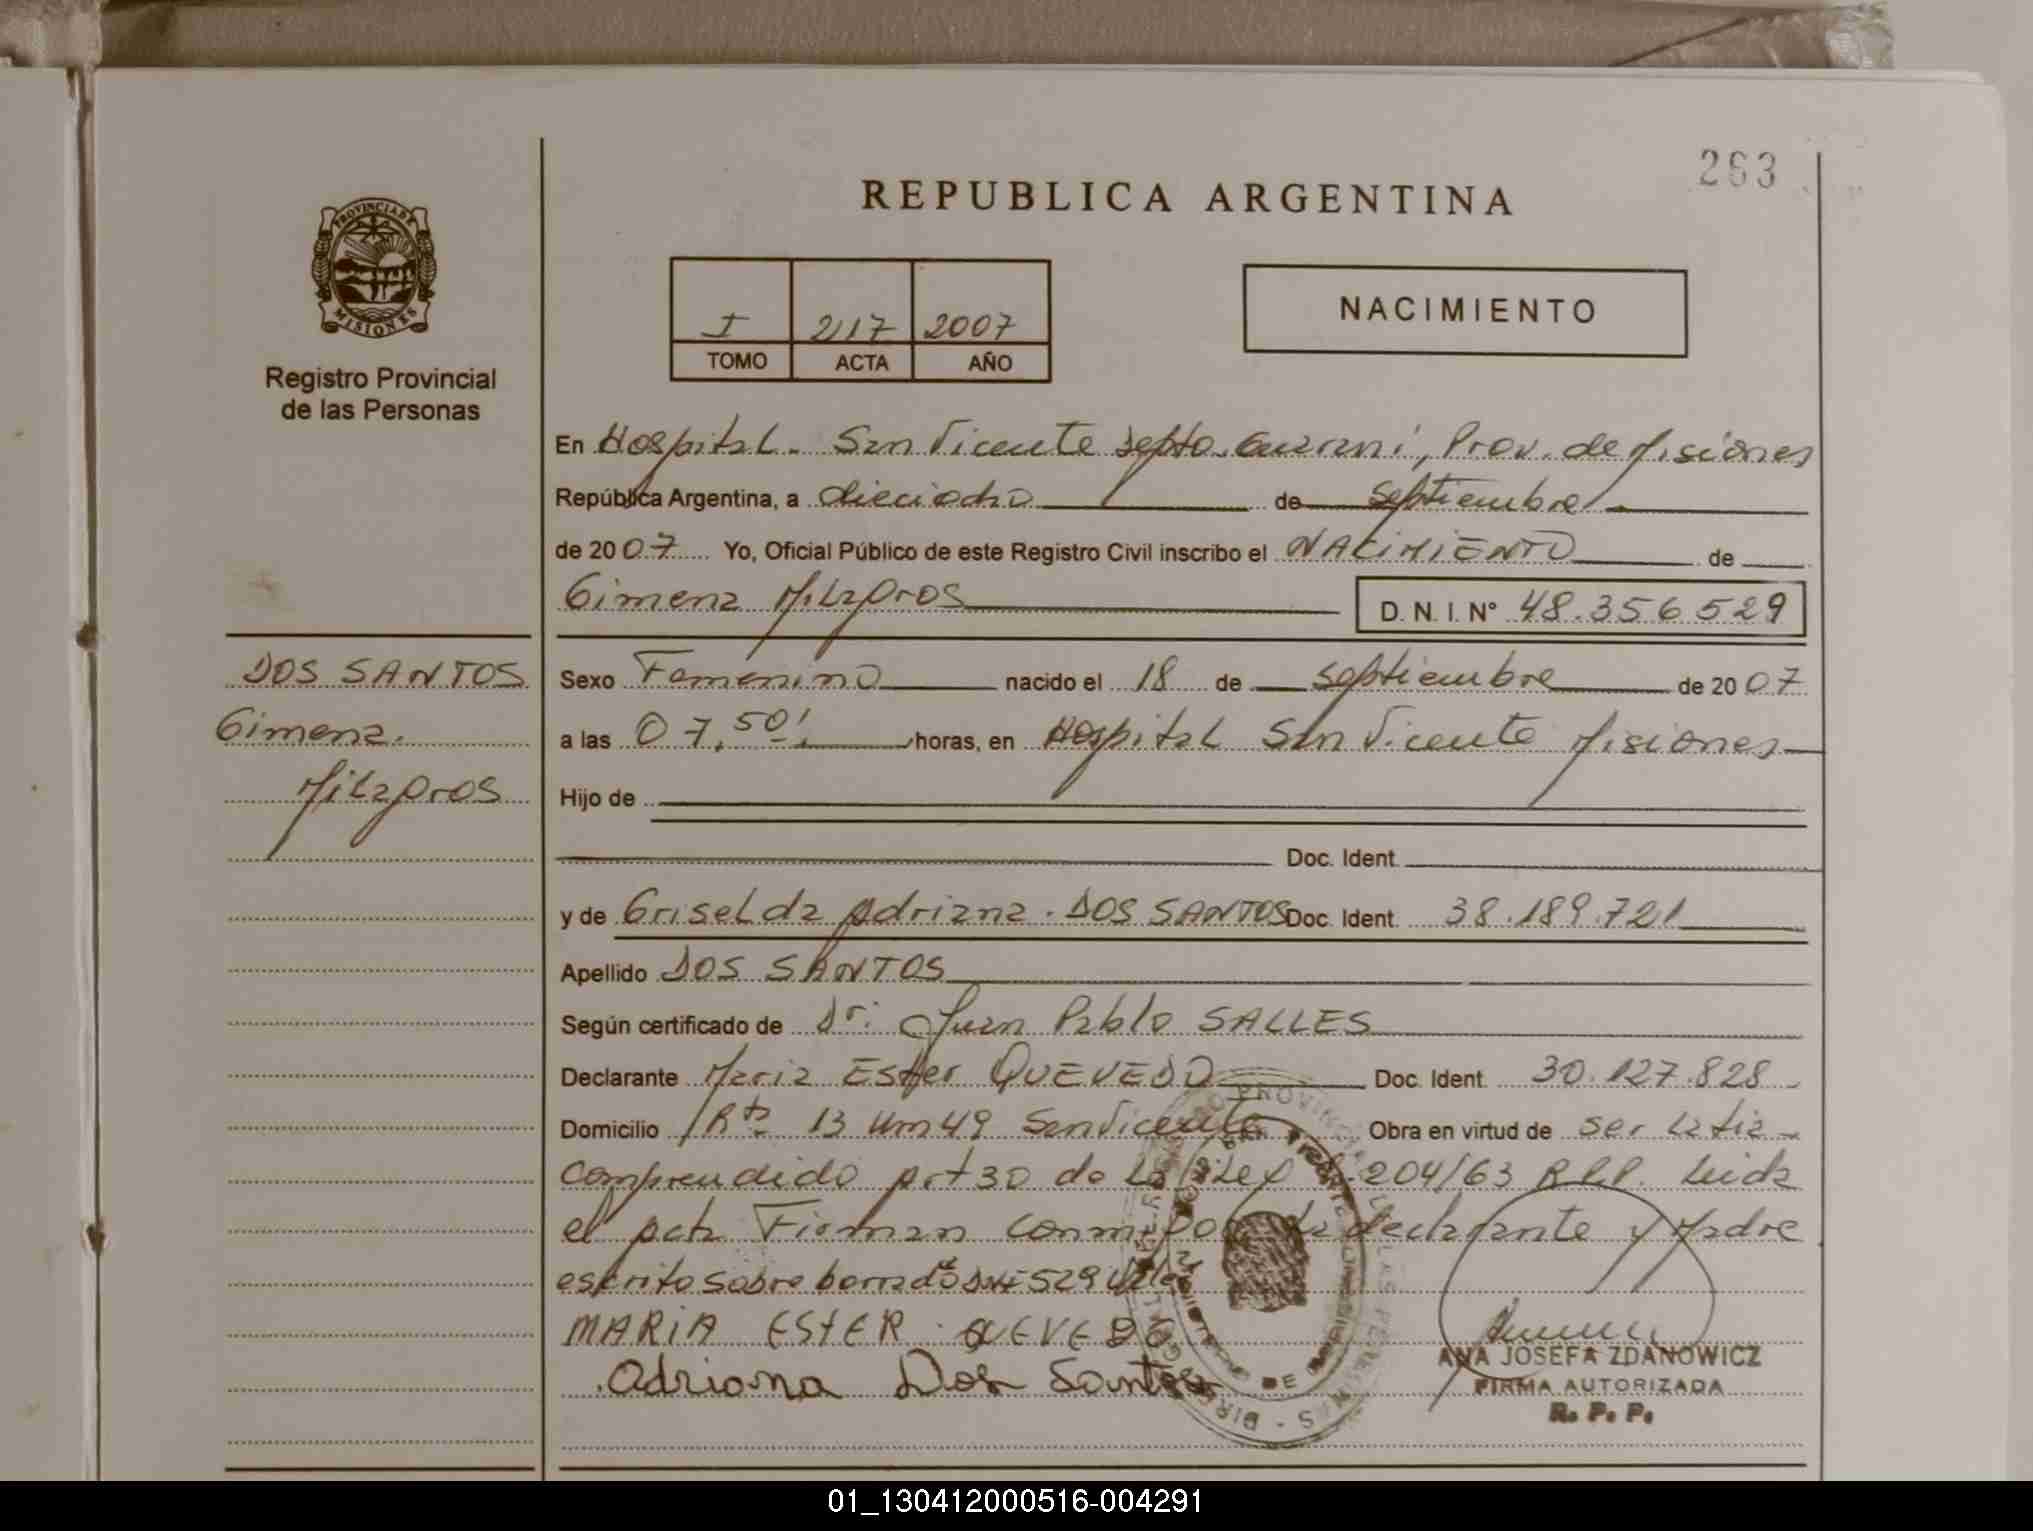 263
REPUBLICA ARGENTINA
PROVINCIA DE
MISIONES
Registro Provincial
de las Personas
I 217 2007
TOMO ACTA AÑO
NACIMIENTO
En Hospital. San Vicente Depto. Guarani, Prov. de Misiones
República Argentina, a dieciocho de Septiembre
de 2007 Yo, Oficial Público de este Registro Civil inscribo el NACIMIENTO de
Gimena Milagros D. N. I. N° 48.356529
DOS SANTOS
Gimena.
Milagros
Sexo Femenino nacido el 18 de septiembre de 2007
a las 07,50' horas, en Hospital San Vicente Misiones
Hijo de
Doc. Ident.
y de Griselda Adriana. DOS SANTOS Doc. Ident. 38.189.721
Apellido DOS SANTOS
Según certificado de Dr. Juan Pablo SALLES
Declarante Maria Ester QUEVEDO Doc. Ident. 30.127.828
Domicilio Rta 13 Km 49 San Vicente Obra en virtud de ser la tia
comprendido art 30 de la Ley 204/63 R.P.P. Leida
el acta Firman conmigo la declarante y Madre
escrito sobre borrado 529 Vale
MARIA ESTER QUEVEDO
Adriana Dos Santos
ANA JOSEFA ZDANOWICZ
FIRMA AUTORIZADA
R. P. P.
01_130412000516-004291